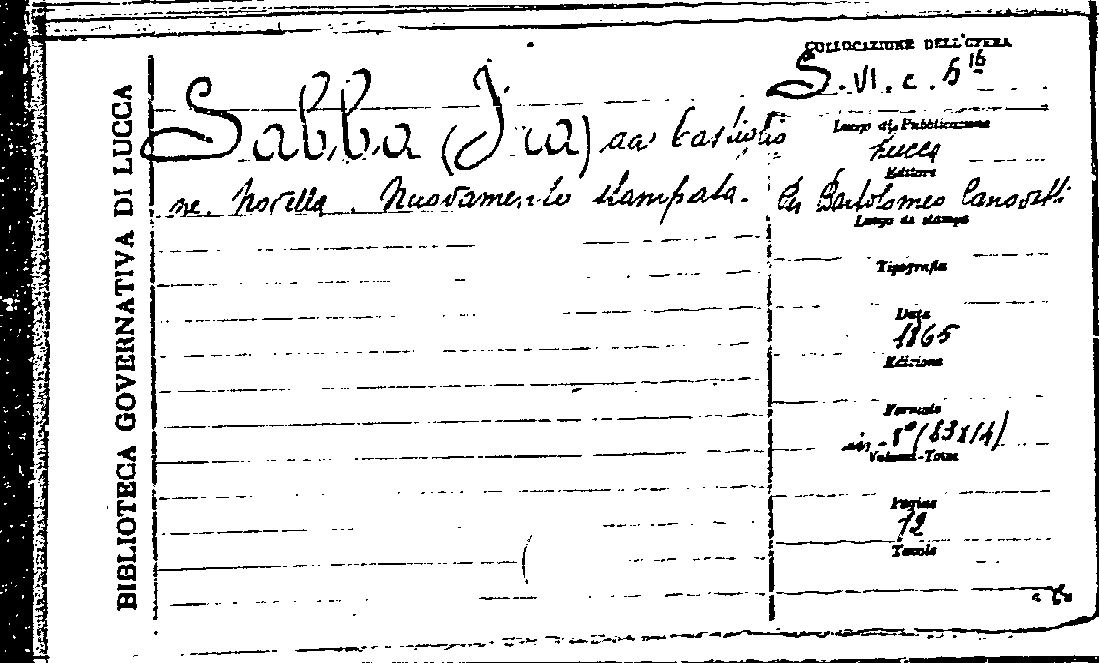 BIBLIOTECA GOVERNATIVA DI LUCCA
COLLOCAZIONE DELL'OPERA
S. VI. c. 5 16
Sabba (Fra) da Castiglio
ne. Novella. Nuovamente stampata.
Luogo di Pubblicazione
Lucca
Editore
Per Bartolomeo Canovetti
Luogo di stampa
Tipografia
Data
1865
Edizione
Formato
in-8°
Volumi-Tomi
Pagine
12
Tavole